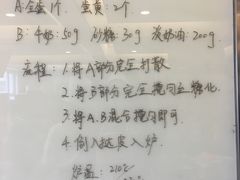 A:全蛋1个. 蛋黄:2个
B:牛奶:50g 砂糖:30g 淡奶油:200g.
流程:1.将A部分完全打散
2.将B部分完全搅匀至糖化.
3.将A.B混合搅匀即可.
4.倒入挞皮入炉.
炉温:210℃